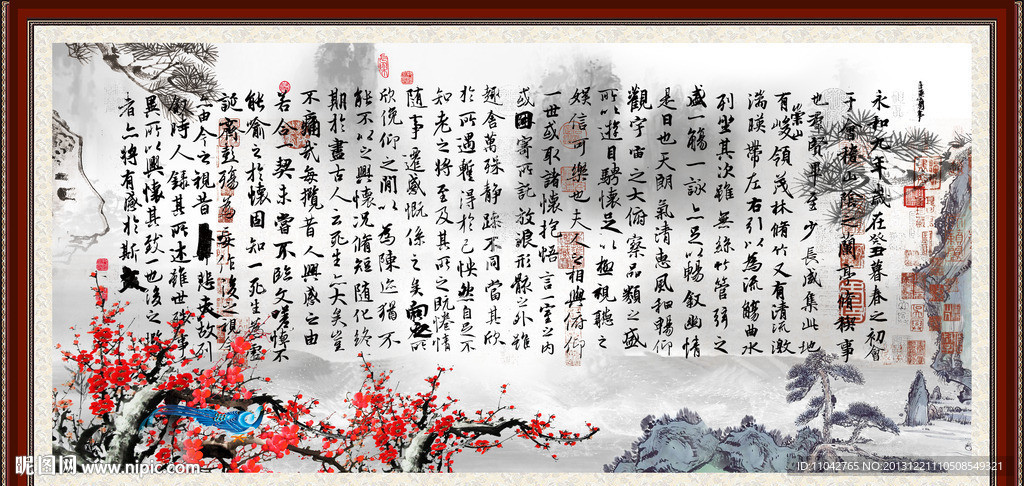 永和九年歲在癸丑暮春之初會
于會稽山陰之蘭亭脩稧事
也羣賢畢至少長咸集此地
有崇山峻領茂林脩竹又有清流激
湍暎帶左右引以為流觴曲水
列坐其次雖無絲竹管弦之
盛一觴一詠亦足以暢敘幽情
是日也天朗氣清惠風和暢仰
觀宇宙之大俯察品類之盛
所以遊目騁懷足以極視聽之
娛信可樂也夫人之相與俯仰
一世或取諸懷抱悟言一室之內
或因寄所託放浪形骸之外雖
趣舍萬殊靜躁不同當其欣
於所遇暫得於己怏然自足不
知老之將至及其所之既惓情
隨事遷感慨係之矣向之所
欣俛仰之間以為陳迹猶不
能不以之興懷況脩短隨化終
期於盡古人云死生亦大矣豈
不痛哉每攬昔人興感之由
若合一契未嘗不臨文嗟悼不
能喻之於懷固知一死生為虛
誕齊彭殤為妄作後之視今
亦由今之視昔悲夫故列
敘時人錄其所述雖世殊事
異所以興懷其致一也後之攬
者亦將有感於斯文
昵图网 www.nipic.com
ID:11042765 NO:20131221110508549321